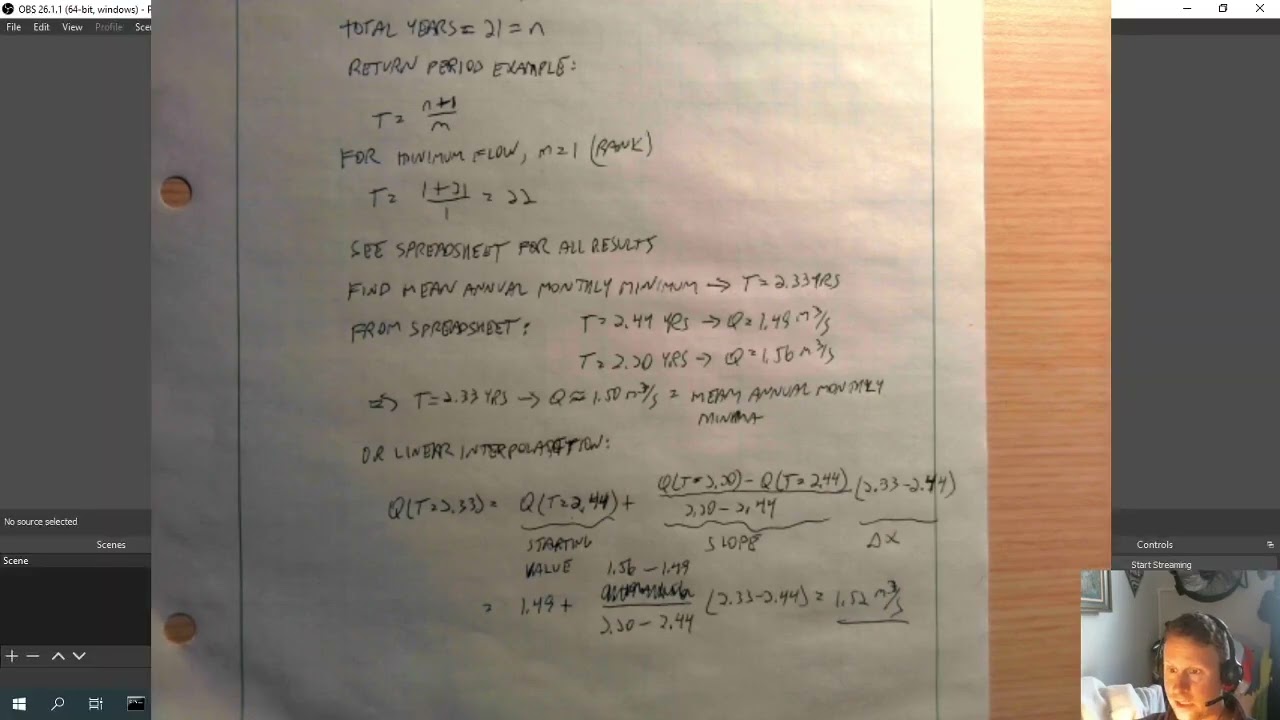 OBS 26.1.1 (64-bit, windows) - P
File Edit View Profile Scen
TOTAL YEARS = 21 = n
RETURN PERIOD EXAMPLE:
T = n+1/m
FOR MINIMUM FLOW, m=1 (RANK)
T = 1+21/1 = 22
SEE SPREADSHEET FOR ALL RESULTS
FIND MEAN ANNUAL MONTHLY MINIMUM → T=2.33YRS
FROM SPREADSHEET: T=2.44 YRS → Q=1.49 m³/s
T=2.20 YRS → Q=1.56 m³/s
⇒ T=2.33 YRS → Q≈1.50 m³/s = MEAN ANNUAL MONTHLY
MINIMA
OR LINEAR INTERPOLATION:
Q(T=2.33) = Q(T=2.44) + Q(T=2.20) - Q(T=2.44)/2.20-2.44 (2.33-2.44)
STARTING VALUE SLOPE ΔX
= 1.49 + 1.56-1.49/2.20-2.44 (2.33-2.44) = 1.52 m³/s
No source selected
Scenes
Scene
Controls
Start Streaming